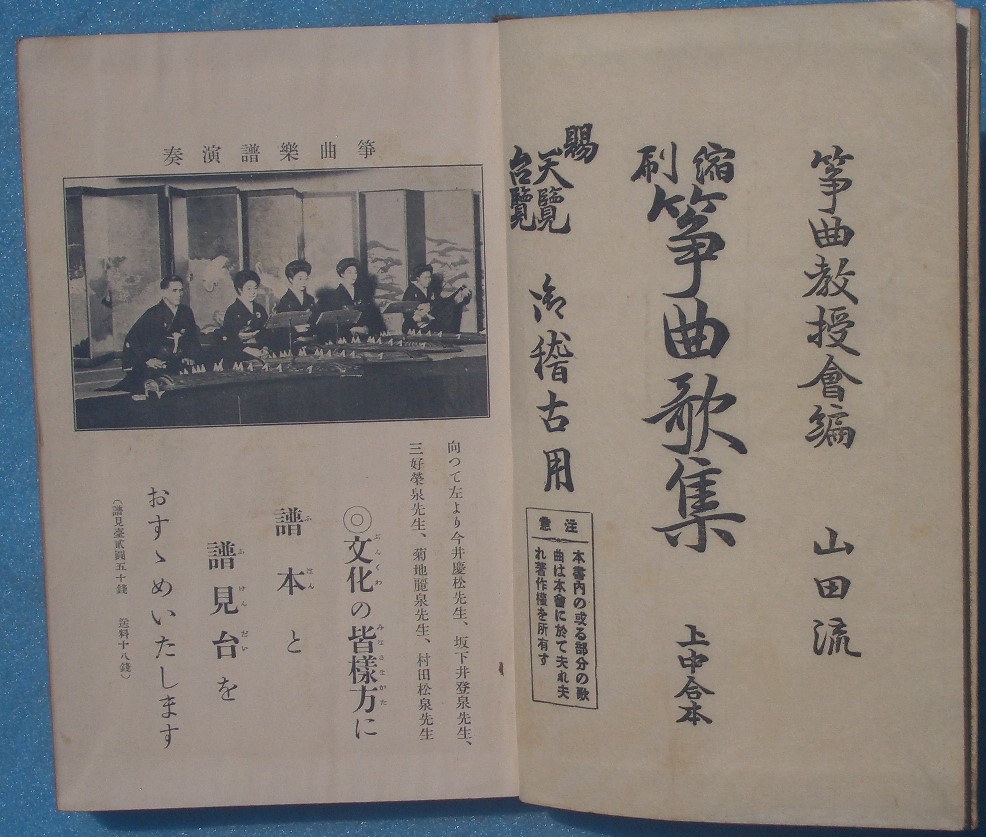 箏曲教授會編　山田流
縮刷
箏曲歌集　上中合本
賜
天覽
台覽
御稽古用
注意
本書内の或る部分の歌
曲は本會に於て夫れ夫
れ著作權を所有す
奏演譜樂曲箏
向つて左より今井慶松先生、坂下井登泉先生、
三好榮泉先生、菊地麗泉先生、村田松泉先生
◎文化の皆樣方に
ぶんくわ　みなさまがた
譜本と
ふほん
譜見台を
ふけんだい
おすゝめいたします
（譜見臺貳圓五十錢　送料十八錢）